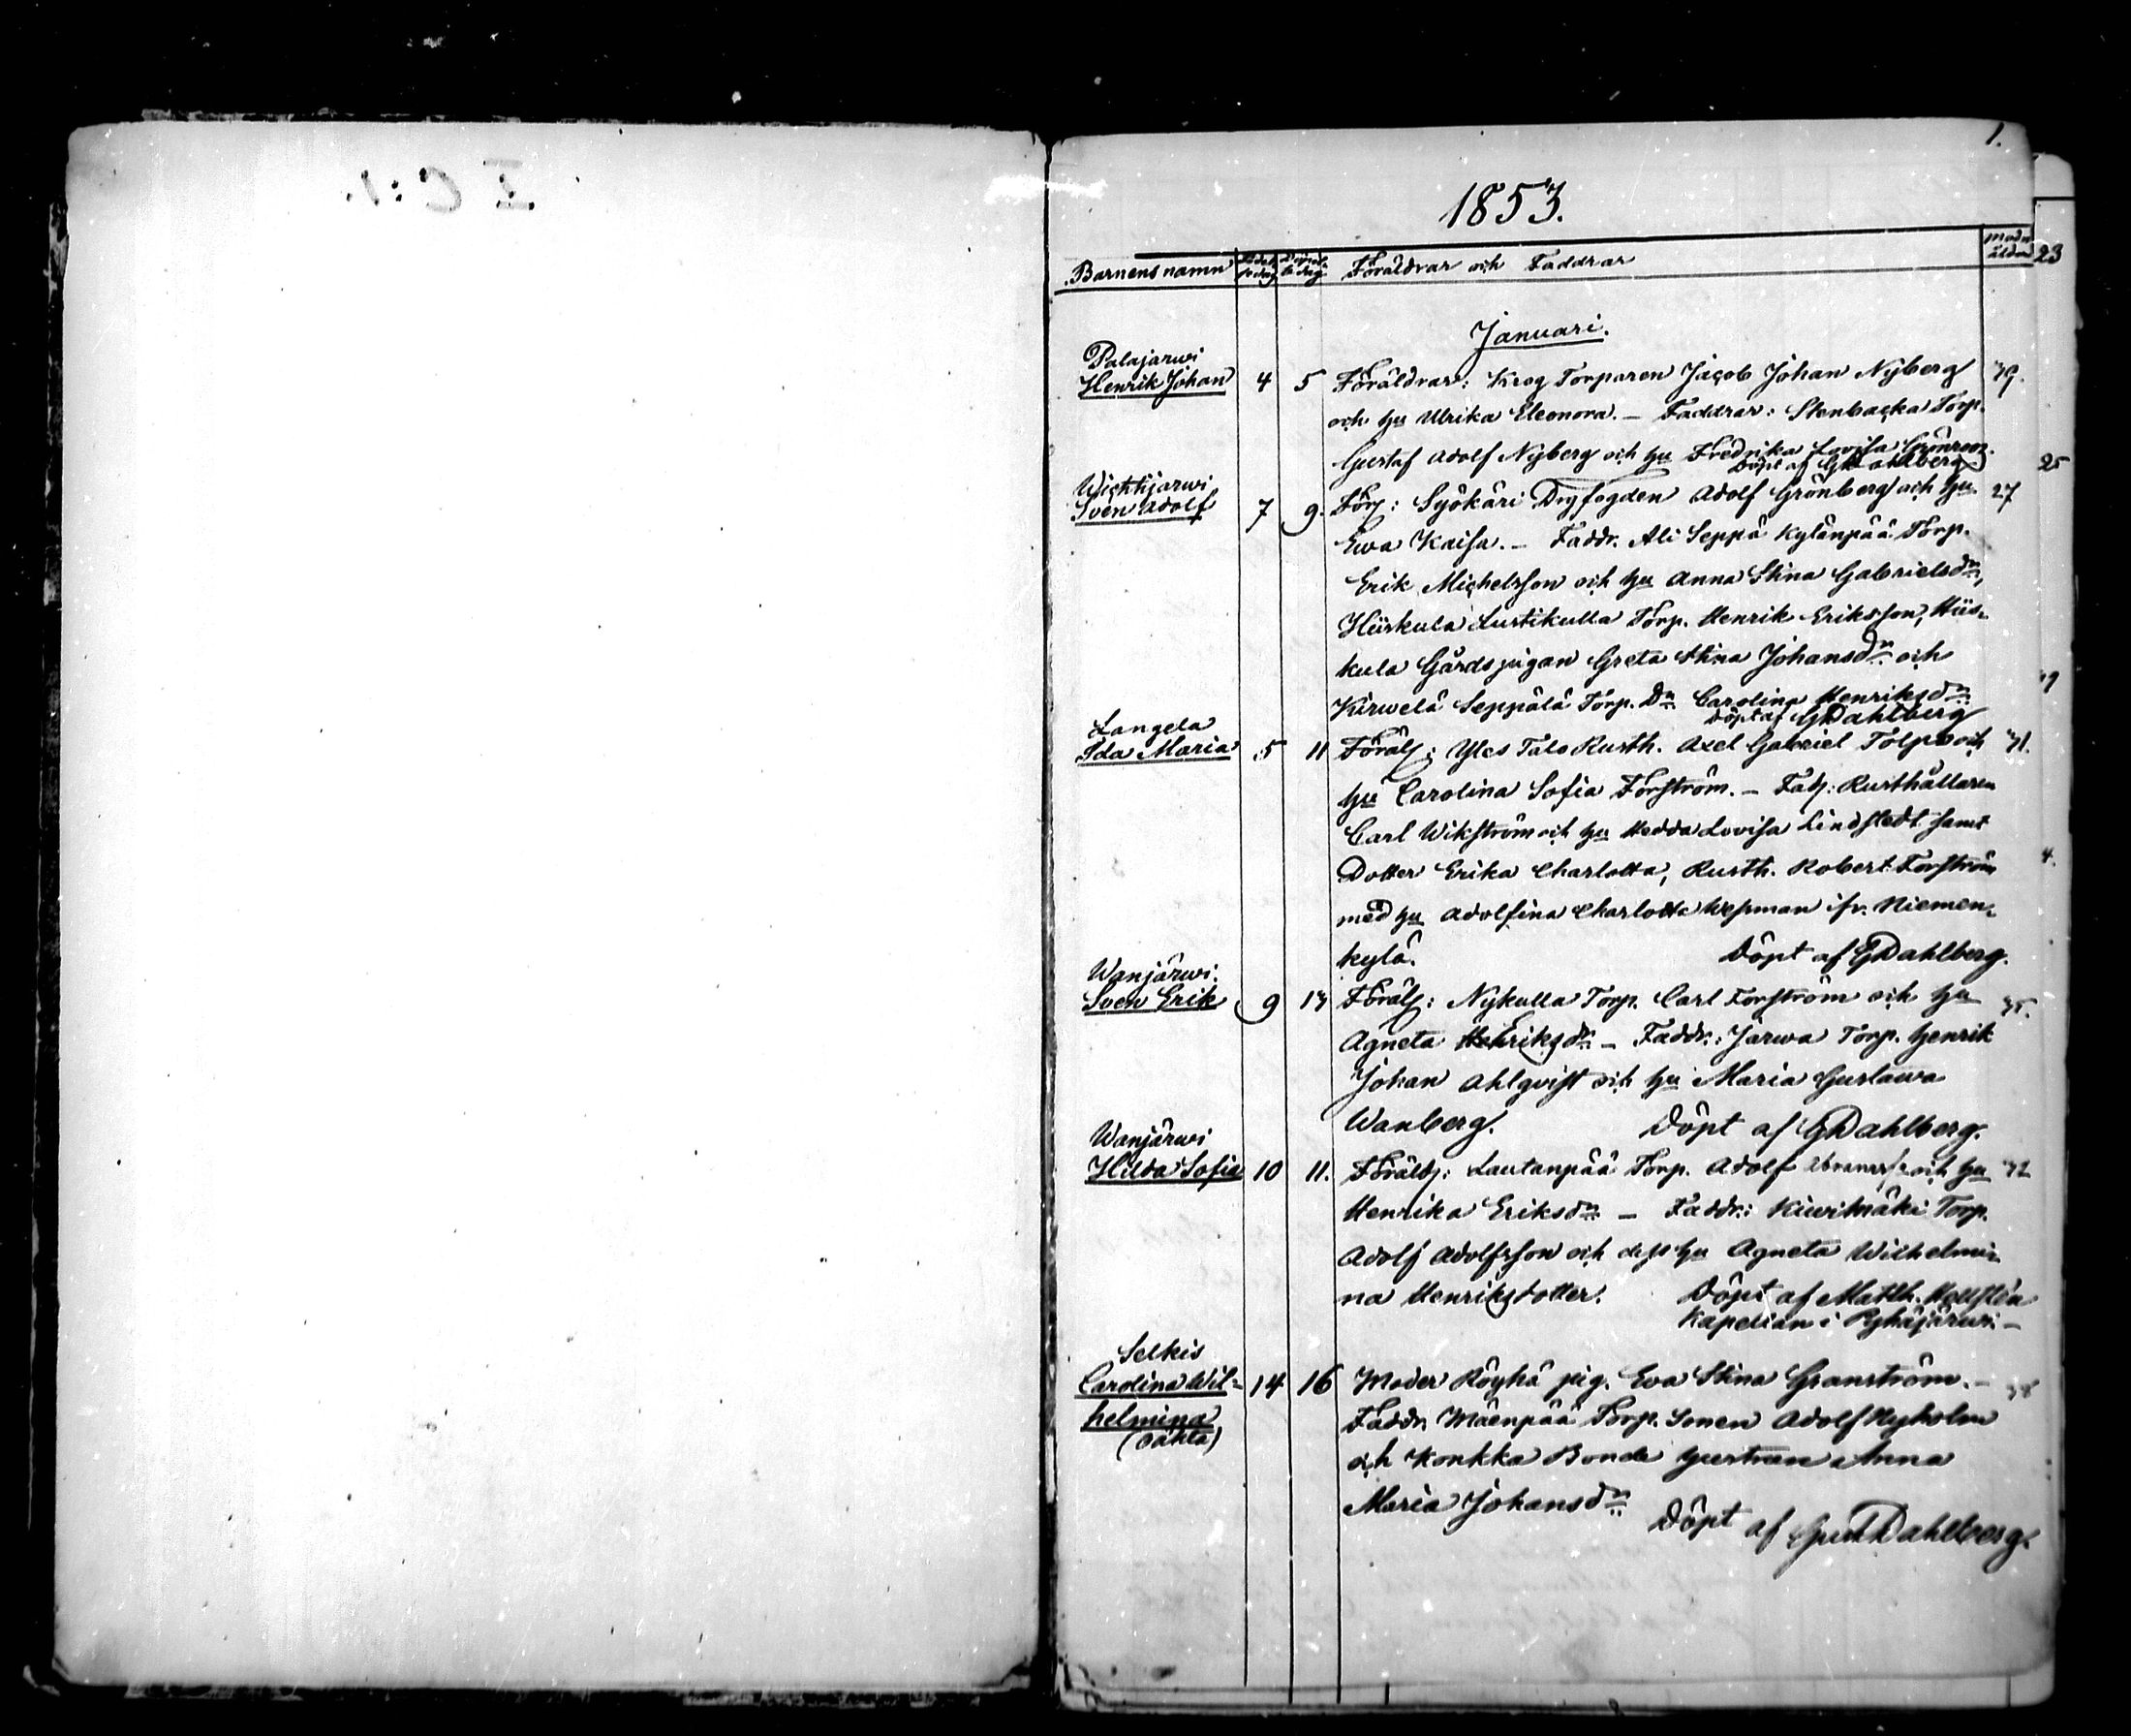 I C:1.
1.
1853.
Barnens namn Födelsedag Döpelsedag Föräldrar och Faddrar Modr. ålder
23
Januari.
Palajärwi
Henrik Johan 4 5 Föräldrar: Krog Torparen Jacob Johan Nyberg 39.
och hu Ulrika Eleonora. – Faddrar: Stenbacka Torp.
Gustaf Adolf Nyberg och hu Fredrika Lovisa Grönroos.
Döpt af GDahlberg
25
Wichtijärwi
Sven Adolf 7 9. För: Syökäri Dryfogden Adolf Grönberg och hu 27
Ewa Kaisa. – Faddr. Ali Seppä Kylänpää Torp.
Erik Michelsson och hu Anna Stina Gabrielsdr,
Hiiskula Lustikulla Torp. Henrik Eriksson, Hiis-
kula Gårdspigan Greta Stina Johansdr och
Kirwelä Seppälä Torp. Dr Carolina Henriksdr
Döpt af GDahlberg
Langela
Ida Maria 5 11 Föräld: Yles Talo Rusth. Axel Gabriel Tolpo och 31.
hu Carolina Sofia Forström. – Fad: Rusthållaren
Carl Wikström och hu Hedda Lovisa Lindstedt samt
Dotter Erika Charlotta, Rusth. Robert Forström 4.
med hu Adolfina Charlotta Wesman ifr. Niemen-
kylä. Döpt af GDahlberg.
Wanjärwi.
Sven Erik 9 13 Föräld: Nykulla Torp. Carl Forström och hu 35.
Agneta Eriksdr – Faddr.: Jarwa Torp. Henrik
Johan Ahlqvist och hu Maria Gustawa
Wanberg. Döpt af GDahlberg.
Wanjärwi
Hilda Sofia 10 11. Föräld: Lautanpää Torp. Adolf Abramss. och hu 32
Henrika Eriksdr – Faddr.: Kiwimäki Torp.
Adolf Adolfsson och dess hu Agneta Wilhelmi-
na Henriksdotter. Döpt af Matth. Hellstén
Kapellan i Pyhäjärwi –
Selkis
Carolina Wil- 14 16 Moder Röyhä pig. Eva Stina Granström. – 38
helmina Faddr. Mäenpää Torp. Sonen Adolf Nyholm
(oäkta)
och Konkka Bonde hustrun Anna
Maria Johansdr
Döpt af GustDahlberg.